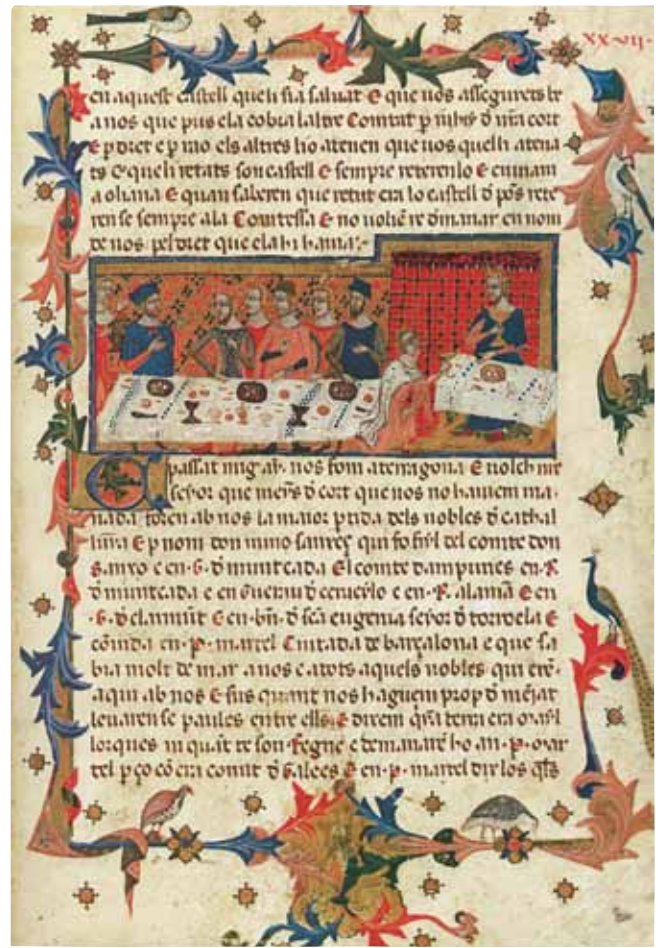 XXVII.
en aquest castell queli sia saluat E que uos assegurets be
a nos que pus ela cobra laltre Comtat p nr̄a cort
E p dret e p rao els altres ho atenen que uos quelli atena
ts E queli retats son castell E sempre reterenlo E enuiam
a oliana E quan saberen que retut era lo castell d pōs rete
ren se sempre ala Comtessa E no uolgē re dmanar en nom
de nos pel dret que ela hi hauia.
E passat mig añ. nos fom aterragona E uolch nre
seyor que meyns d cort que nos no hauiem ma
nada foren ab nos la maior ptida dels nobles d cathal
unya E p nom don nuno sanxes qui fo fiyl del comte don
Sanxo e en .G. d muntcada El comte dampuries en .R.
d muntcada e en Guerau d cerueylo e en .R. alamā E en
.G. d claramūt E en bn̄. d scā eugenia seyor d torroela E
en .P. martel Ciutada de barcalona e que sa
bia molt de mar a nos e atots aquels nobles qui erē
aqui ab nos E sus quant nos haguem prop d mējat
leuaren se paraules entre ells. E dixem qna terra era mayl
lorques ni quāt te son Regne e demanarē ho an .P. mar
tel p ço cō era comit d Galees E en .P. martel dix los